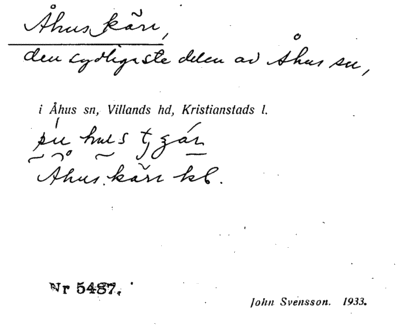 Åhus kärr,
den sydligaste delen av Åhus sn,
i Åhus sn, Villands hd, Kristianstads l.
Åhus. kärr kl.
Nr 5487.
John Svensson. 1933.